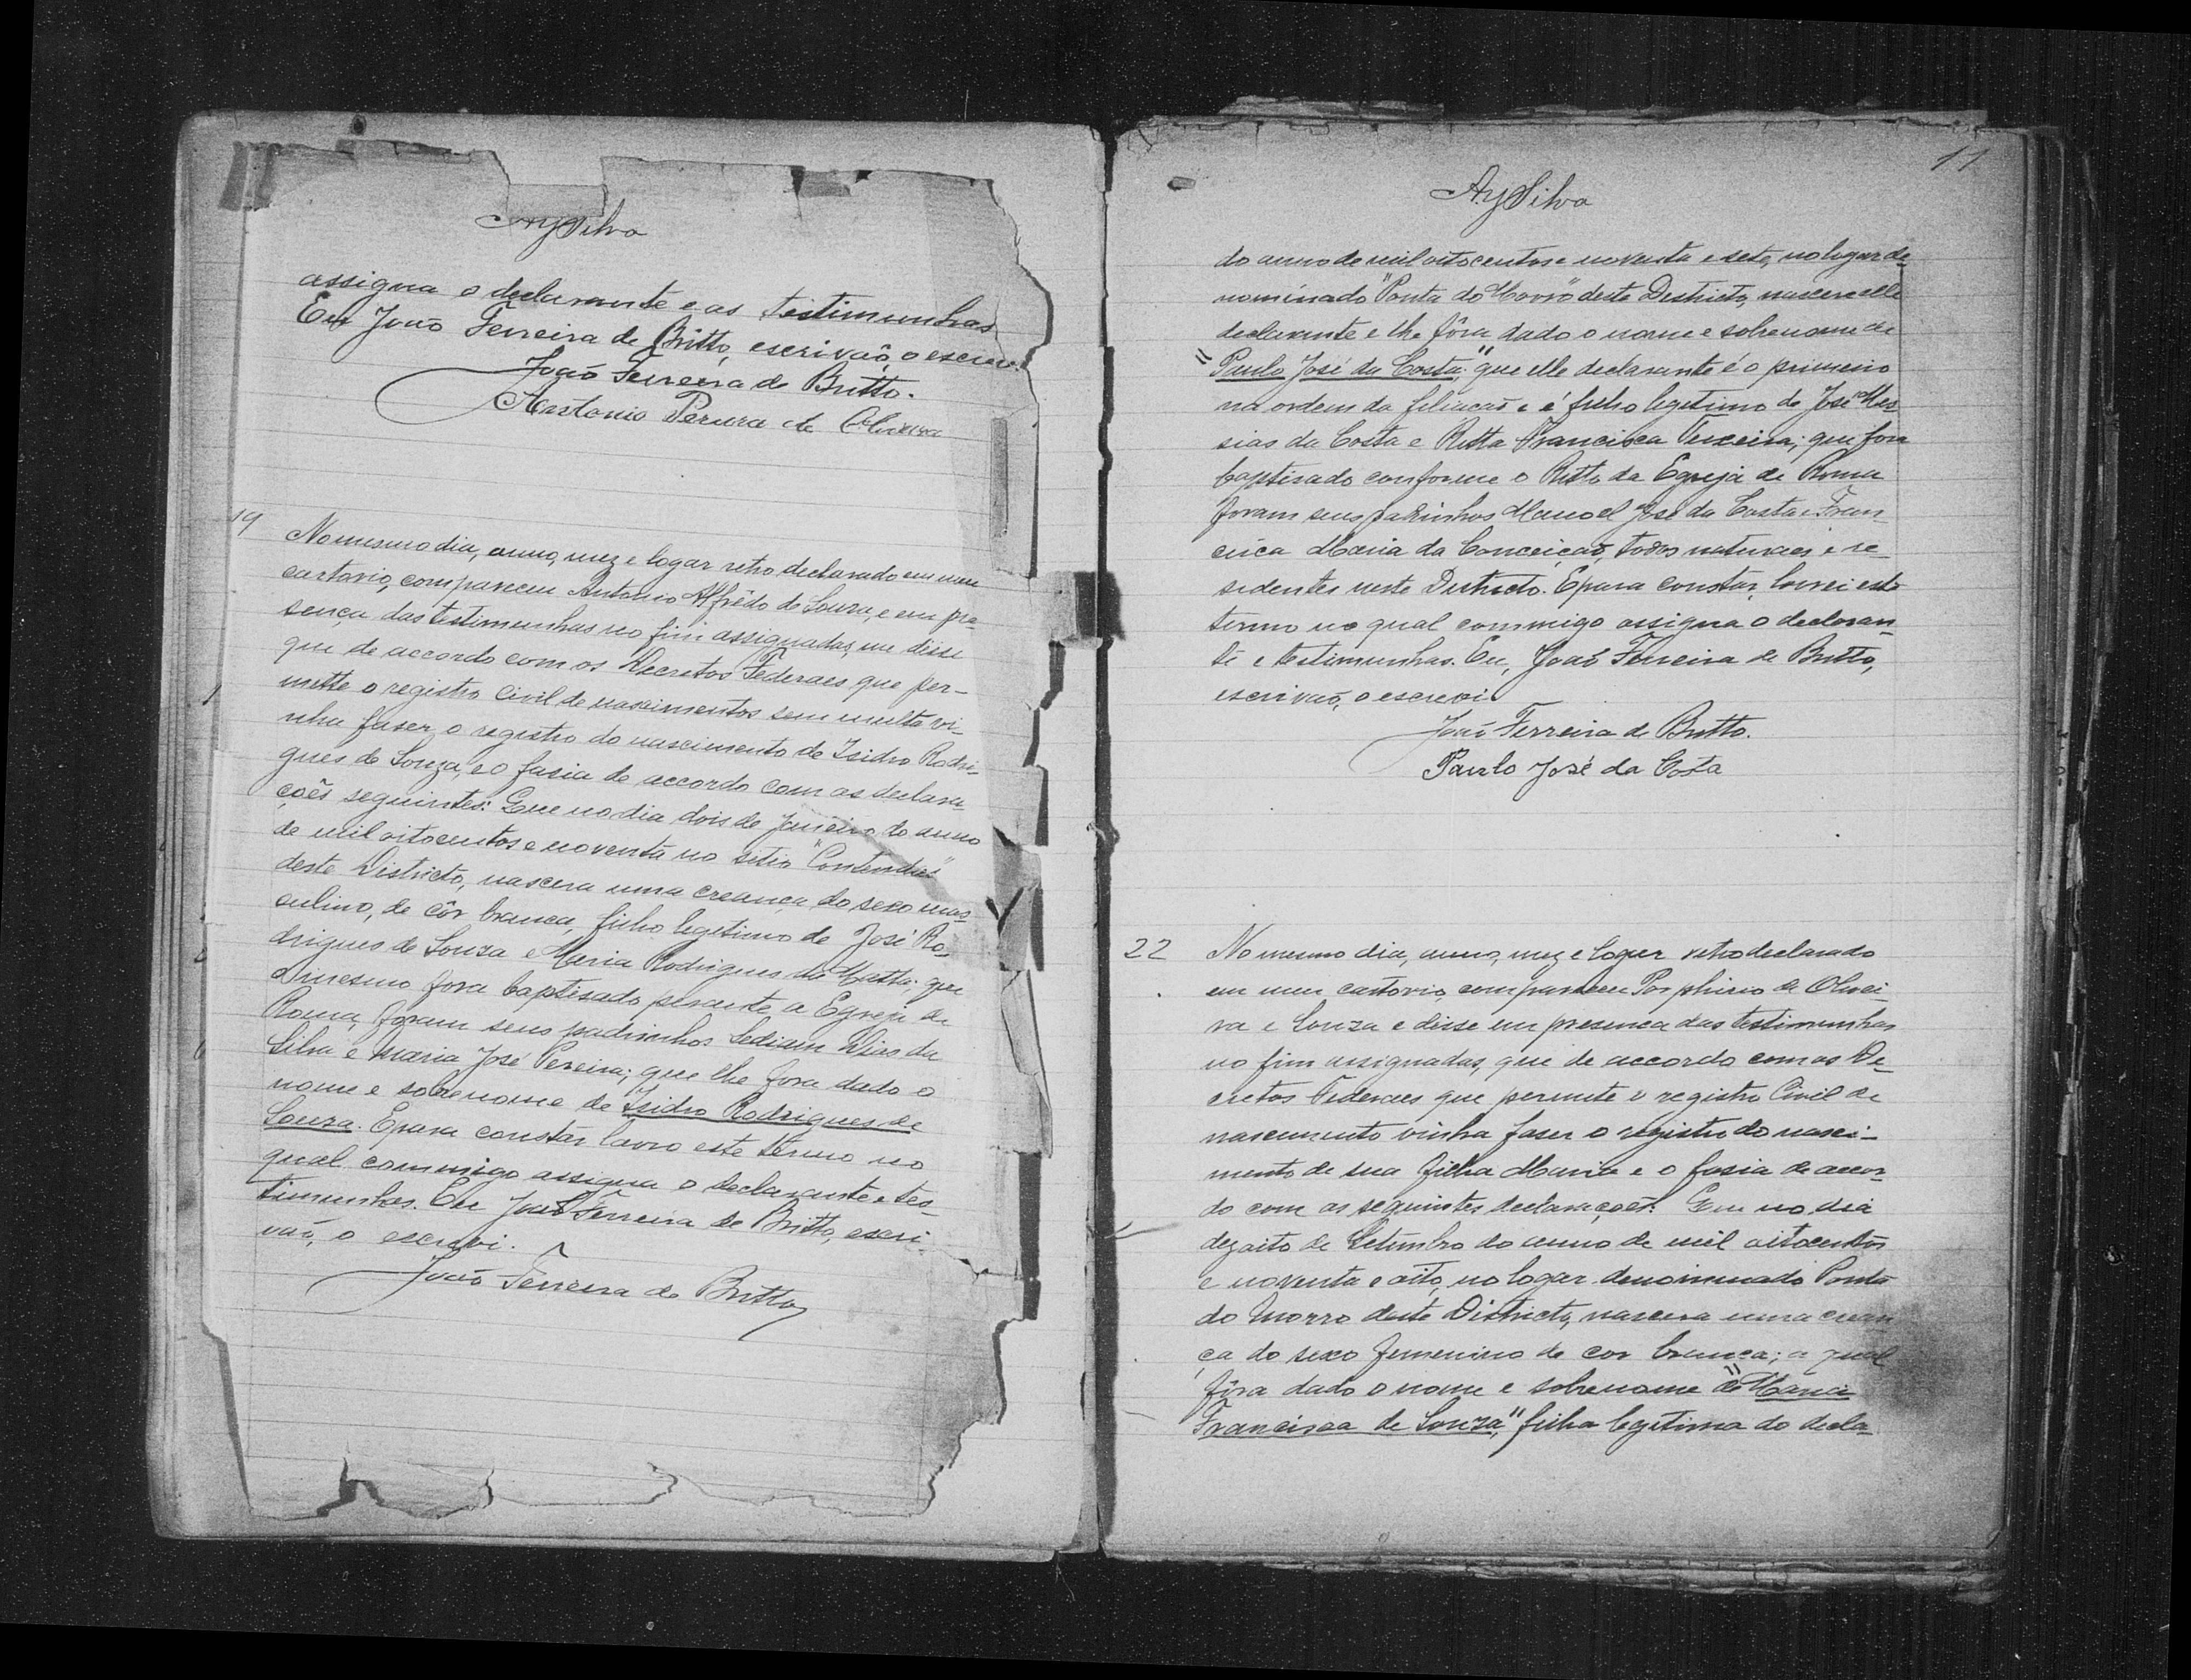 AySilva
assigna o declarante e as testimunhas
Eu João Ferreira de Britto, escrivaõ, o escrevi.
João Ferreira de Britto.
Antonio Pereira de Oliveira
19
No mesmo dia, anno, mez e logar retro declarado em meu
cartorio, compareceu Antonio Alfrêdo de Souza, e em pre-
sença das testimunhas no fim assignadas, me disse
que de accordo com os Decretos Federaes que per-
mitte o registro Civil de nascimentos sem multa vi-
nha faser o registro do nascimento de Isidro Rodri-
gues de Souza, e o fasia de accordo com as declara-
çoês seguintes: Que no dia dois de Janeiro do anno
de mil oitocentos e noventa no sitio "Contendas"
deste Districto, nascera uma creança do sexo mas-
culino, de côr branca, filho legitimo de José Ro-
drigues de Souza e Maria Rodrigues da Matta; que
o mesmo fora baptisado perante a Egreja de
Roma, foram seus padrinhos Dias da
Silva e Maria José Pereira; que lhe fora dado o
nome e sobrenome de Isidro Rodrigues de
Souza. E para constar lavro este termo no
qual commigo assigna o declarante e tes-
timunhas. Eu João Ferreira de Britto, escri-
vaõ, o escrevi.
João Ferreira de Britto
11
AySilva
do anno de mil oitocentos e noventa e sete, no logar de-
nominado "Ponta do Morro" deste Destricto, nascera elle
declarante e lhe fôra dado o nome e sobrenome de
"Paulo José da Costa;" que elle declarante é o primeiro
na ordem da filiacaõ e é filho legitimo de José Mes-
sias da Costa e Ritta Francisca Teixeira; que fora
baptisado conforme o Ritto da Egreja de Roma
foram seus padrinhos Manoel José da Costa e Fran-
cisca Maria da Conceiçaõ, todos naturaes e re-
sidentes neste Districto. E para constar, lavrei este
termo no qual commigo assigna o declaran-
te e testimunhas. Eu, João Ferreira de Britto,
escrivaõ, o escrevi
João Ferreira de Britto.
Paulo José da Costa
22
No mesmo dia, anno, mez e logar retro declarado
em meu cartorio, compareceu Porphirio de Olivei-
ra e Souza e disse em presenca das testimunhas
no fim assignadas, que de accordo com os De-
cretos Federaes que permite o registro Civil de
nascimento vinha faser o registro do nasci-
mento de sua filha Maria e o fasia de accor-
do com as seguintes declaraçoês: Que no dia
dezoito de Setembro do anno de mil oitocentos
e noventa e oito, no logar denominado Ponta
do Morro deste Districto, nascera uma crean-
ça do sexo femenino de cor branca; a qual
fôra dado o nome e sobrenome de "Maria
Francisca de Souza," filha legitima do decla-